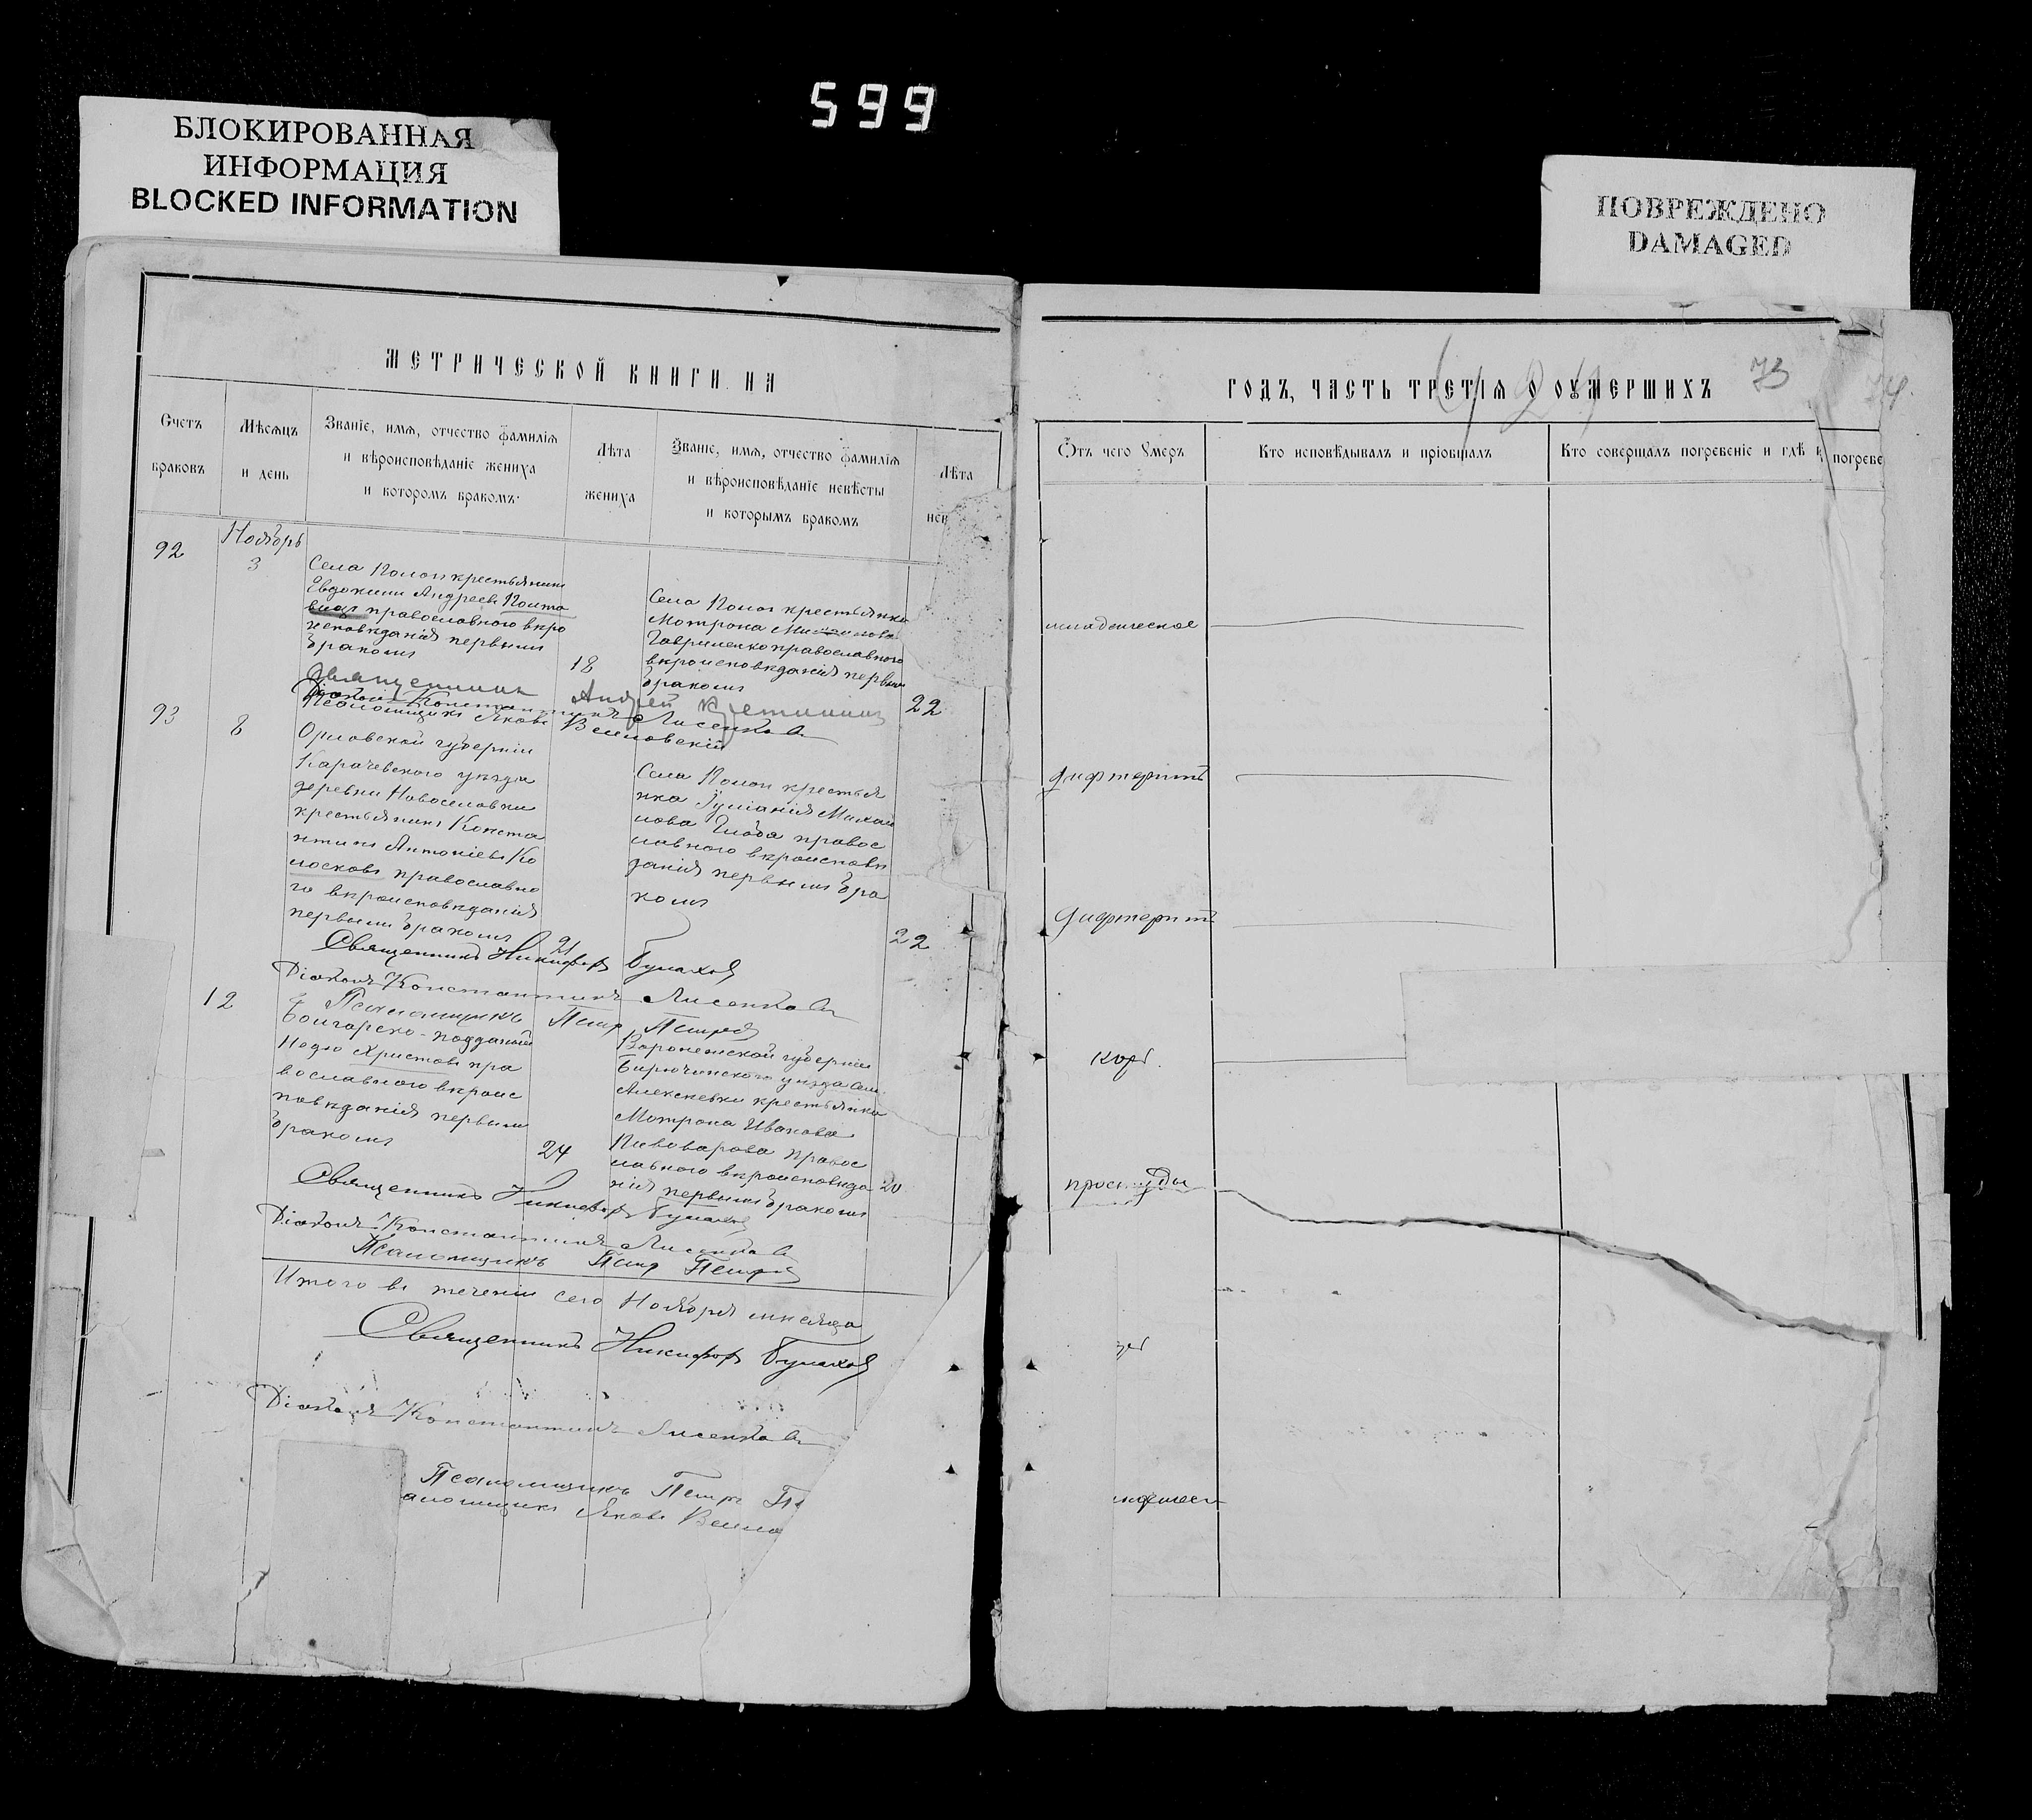 599
БЛОКИРОВАННАЯ
ИНФОРМАЦИЯ
BLOCKED INFORMATION
ПОВРЕЖДЕНО
DAMAGED
МЕТРИЧЕСКОЙ КНИГИ НА
Счетъ
браковъ
Мѣсяцъ
и день
Званіе, имя, отчество фамилія
и вѣроисповѣданіе жениха
и которомъ бракомъ.
Лѣта
жениха
Званіе, имя, отчество фамилія
и вѣроисповѣданіе невѣсты
и которымъ бракомъ
Лѣта
нев
92
Ноябрь
3
Села Пологи крестьянинъ
Андреевъ
православного вѣро
исповѣданія первымъ
бракомъ
18
Села Пологи крестьянка
Мотрона
Гавриленко православного
вѣроисповѣданія первымъ
бракомъ
22
Священникъ Андрей
Діаконъ Константинъ Лисенков
Псаломщикъ Яковъ
93
8
Орловской губерніи
Карачевского уѣзда
деревни Новоселовки
крестьянинъ Конста
нтинъ Антоніевъ Ко
лосковъ православно
го вѣроисповѣданія
первымъ бракомъ
21
Села Пологи крестья
нка Іуліанія Михай
лова Глоба правос
лавного вѣроисповѣ
данія первымъ бра
комъ
22
Священникъ Никифоръ
Діаконъ Константинъ Лисенков
Псаломщикъ Петръ Петров
12
Болгарско-подданый
Недю Христовъ пра
вославного вѣроис
повѣданія первымъ
бракомъ
24
Воронежской губерніи
Бирюченского уѣзда
Алексеевки крестьянка
Мотрона Иванова
Пивоварова правос
лавного вѣроисповѣда
нія первымъ бракомъ
20
Священникъ Никифоръ
Діаконъ Константинъ Лисенков
Псаломщикъ Петр Петров
Итого въ теченіи сего Ноября мѣсяца
Священникъ Никифоръ
Діаконъ Константинъ Лисенков
Псаломщикъ Петръ
аломщикъ Яковъ
ГОДЪ, ЧАСТЬ ТРЕТІЯ О ОУМЕРШИХЪ
73
74
Отъ чего умеръ
Кто исповѣдывалъ и пріобщалъ
Кто совершалъ погребеніе и гдѣ
погребе
младенческое
дифтеритъ
дифтеритъ
корь
простуды